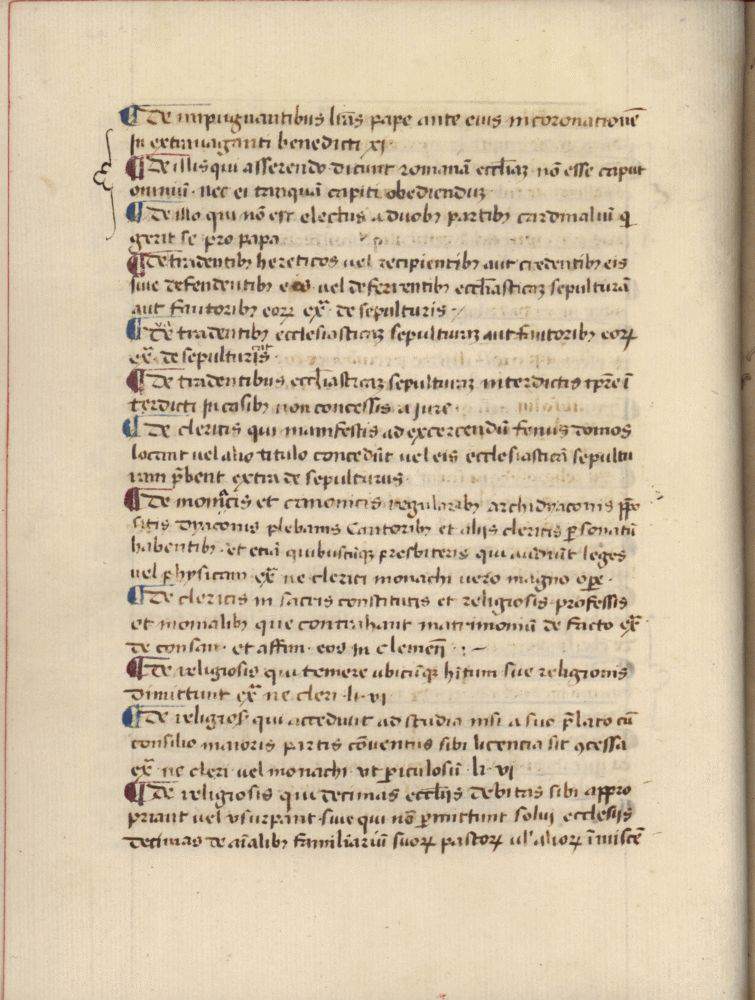 ¶ De impugnantibus lr̃as pape ante eius incoronationẽ
In extrauaganti benedicti xi·
¶ De illis qui asserendo dicunt romanã eccl̃iaʒ nõ esse caput
omniũ · nec ei tanquã capiti obediendũʒ
¶ De illo qui nõ est electus a duobꝰ partibꝰ cardinaliũ qͥ
gerit se pro papa
¶ De tradentibꝰ hereticos uel recipientibꝰ aut credentibꝰ eis
siue defendentibꝰ eos uel deferentibꝰ eccl̃iasticaʒ sepulturã
aut fautoribꝰ eoꝝ ex̃ · de sepulturis ·
¶ De tradentibꝰ ecclesiasticaʒ sepulturaʒ aut fautoribꝰ eoꝝ
ex̃ · de sepulturis ·
¶ De tradentibus eccl̃iasticaʒ sepulturaʒ interdictis tp̃re ĩ
terdicti In casibꝰ non concessis a jure ·
¶ De clericis qui manifestis ad excercendũ fenus domos
locant uel alio titulo concedũt uel eis ecclesiasticã sepultu
ram p̃bent extra de sepulturus ·
¶ De monacis et canonicis regularibꝰ archidyaconis p̃po
sitis dyaconis plebanis Cantoribꝰ et alijs clericis ꝑsonatũ
habentibꝰ · et etiã quibuscũqʒ presbiteris qui audiũt leges
uel physicam ex̃ ne clerici monachi uero magno oꝑe ·
¶ De clericis in sacris constitutis et religiosis professis
et monialibꝰ que contrahant matrimoniũ de facto ex̃ ·
de consan · et affini · eos in clemen̄ · : ~
¶ De religiosis qui temere ubicũqʒ hĩtum sue religionis
dimittunt ex̃ ne cleri · li · vi
¶ De religios· qui accedunt ad studia nisi a suo p̃lato cũ
consilio maioris partis cõuentus sibi licencia sit ꝯcessa
ex̃ ne cleri uel monachi · vt ꝑiculosũ · li · vi
¶ De religiosis qui decimas eccl̃iis debitas sibi appro
priant uel vsurpant · siue qui nõ ꝑmittunt solui ecclesijs
decimas de aĩalibꝰ familiariũ suoꝝ pastoꝝ ul' alioꝝ ĩmiscẽ